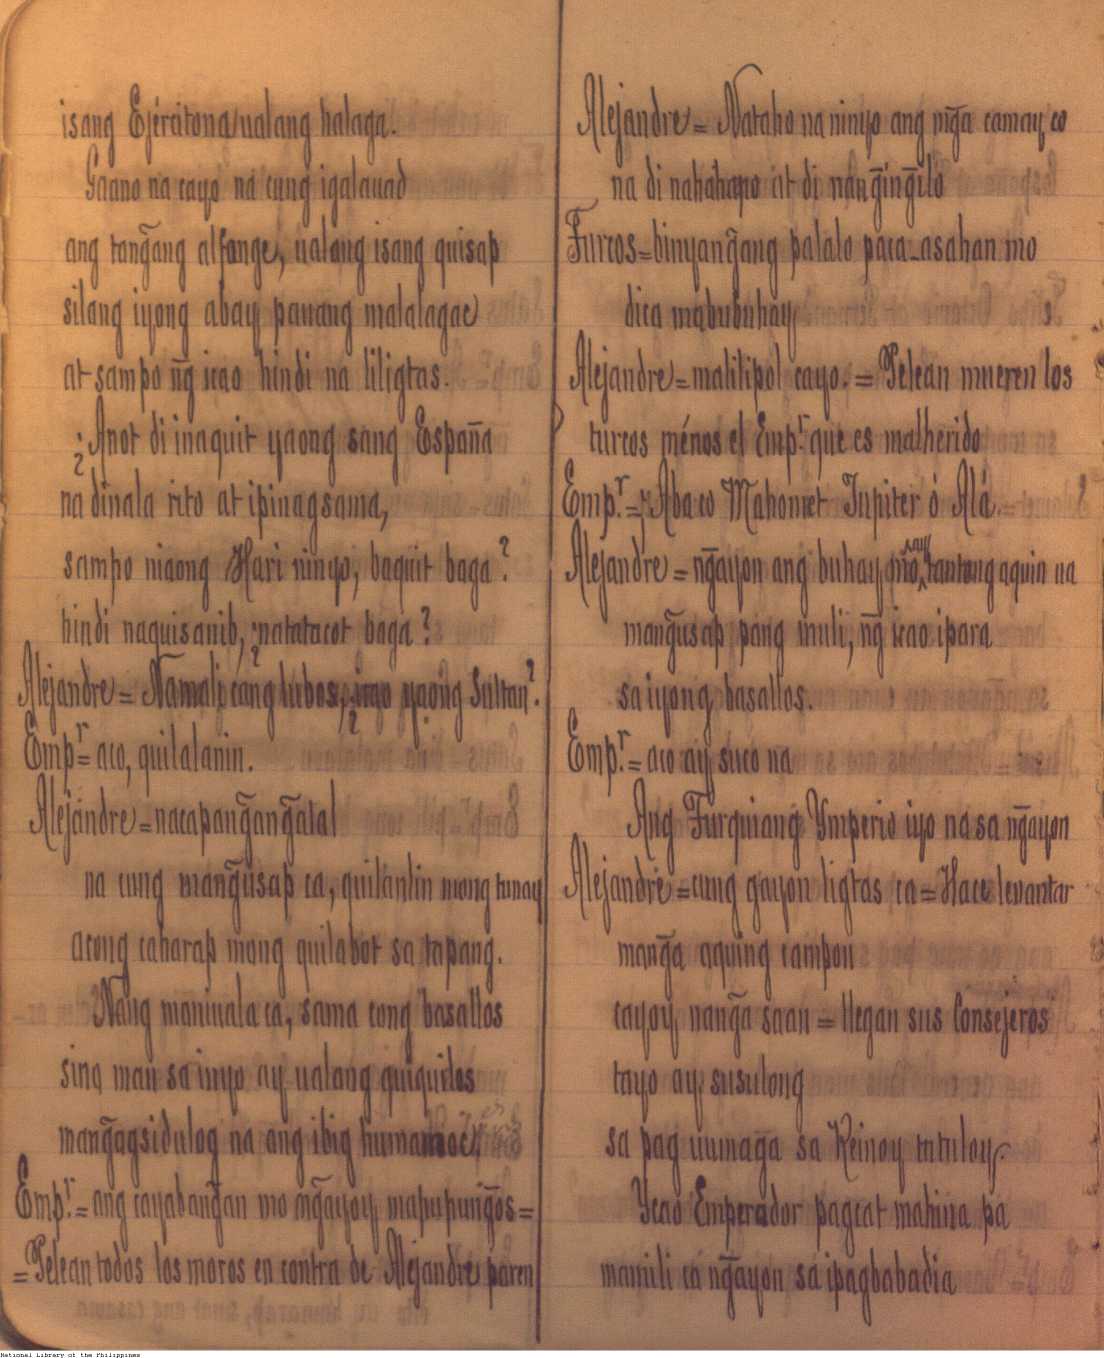 isang Ejército na ualang halaga.
Gaano na cayo na cung igalauad
ang tang̃ang alfange, ualang isang quisap
silang iyong abay pauang malalagac
at sampo ng̃ icao hindi na liligtas.
¿Anot di inaquit yaong sang España
na dinala rito at ipinagsama,
sampo niaong Hari ninyo, baquit baga?
hindi naquisanib, ¿natatacot baga?
Alejandre = Namali cang lubos, ¿icao yaong Sultan?.
Emp.r = aco, quilalanin.
Alejandre = nacapang̃ang̃atal
na cung mang̃usap ca, quilanlin mong tunay
acong caharap mong quilabot sa tapang.
Nang maniuala ca, sama cong basallos
sino man sa inyo ay ualang quiquilos
mang̃agsidulog na ang ibig humamoc
Emp.r = ang cayabang̃an mo ng̃ayoy mapupung̃os =
= Pelean todos los moros en contra de Alejandre paren
Alejandre = Nataho na ninyo ang mg̃a camay co
na di nahahapo at di nang̃ing̃ilo
Turcos = binyang̃ang palalo paca-asahan mo
dica mabubuhay
Alejandre = malilipol cayo. = Pelean mueren los
turcos ménos el Emp.r que es malherido
Emp.r = ¡Aba co Mahomet Jupiter ó Alá.
Alejandre = ng̃ayon ang buhay mo, say tantong aquin na
mang̃usap pang muli, ng̃ icao ipara
sa iyong basallos.
Emp.r = aco ay suco na
Ang Turquiang Ymperio iyo na sa ng̃ayon
Alejandre = cung gayon ligtas ca = Hace levantar
mang̃a aquing campon
cayoy nang̃a saan = llegan sus Consejeros
tayo ay susulong
sa pag uumag̃a sa Reinoy tutuloy
Ycao Emperador pagcat mahina pa
mamili ca ng̃ayon sa ipagbabadia
National Library of the Philippines